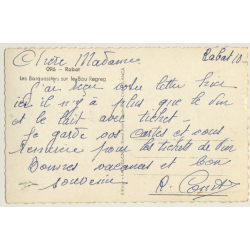 Chère Madame
Rabat 10-
Rabat
Les Barcassiers sur le Bou Regreg
J'ai reçu votre lettre hier
ici il n'y a plus que le vin
et le lait avec ticket -
Je garde vos cartes et vous
remercie pour les tickets de vin
Bonnes vacances et bon
souvenir
R.